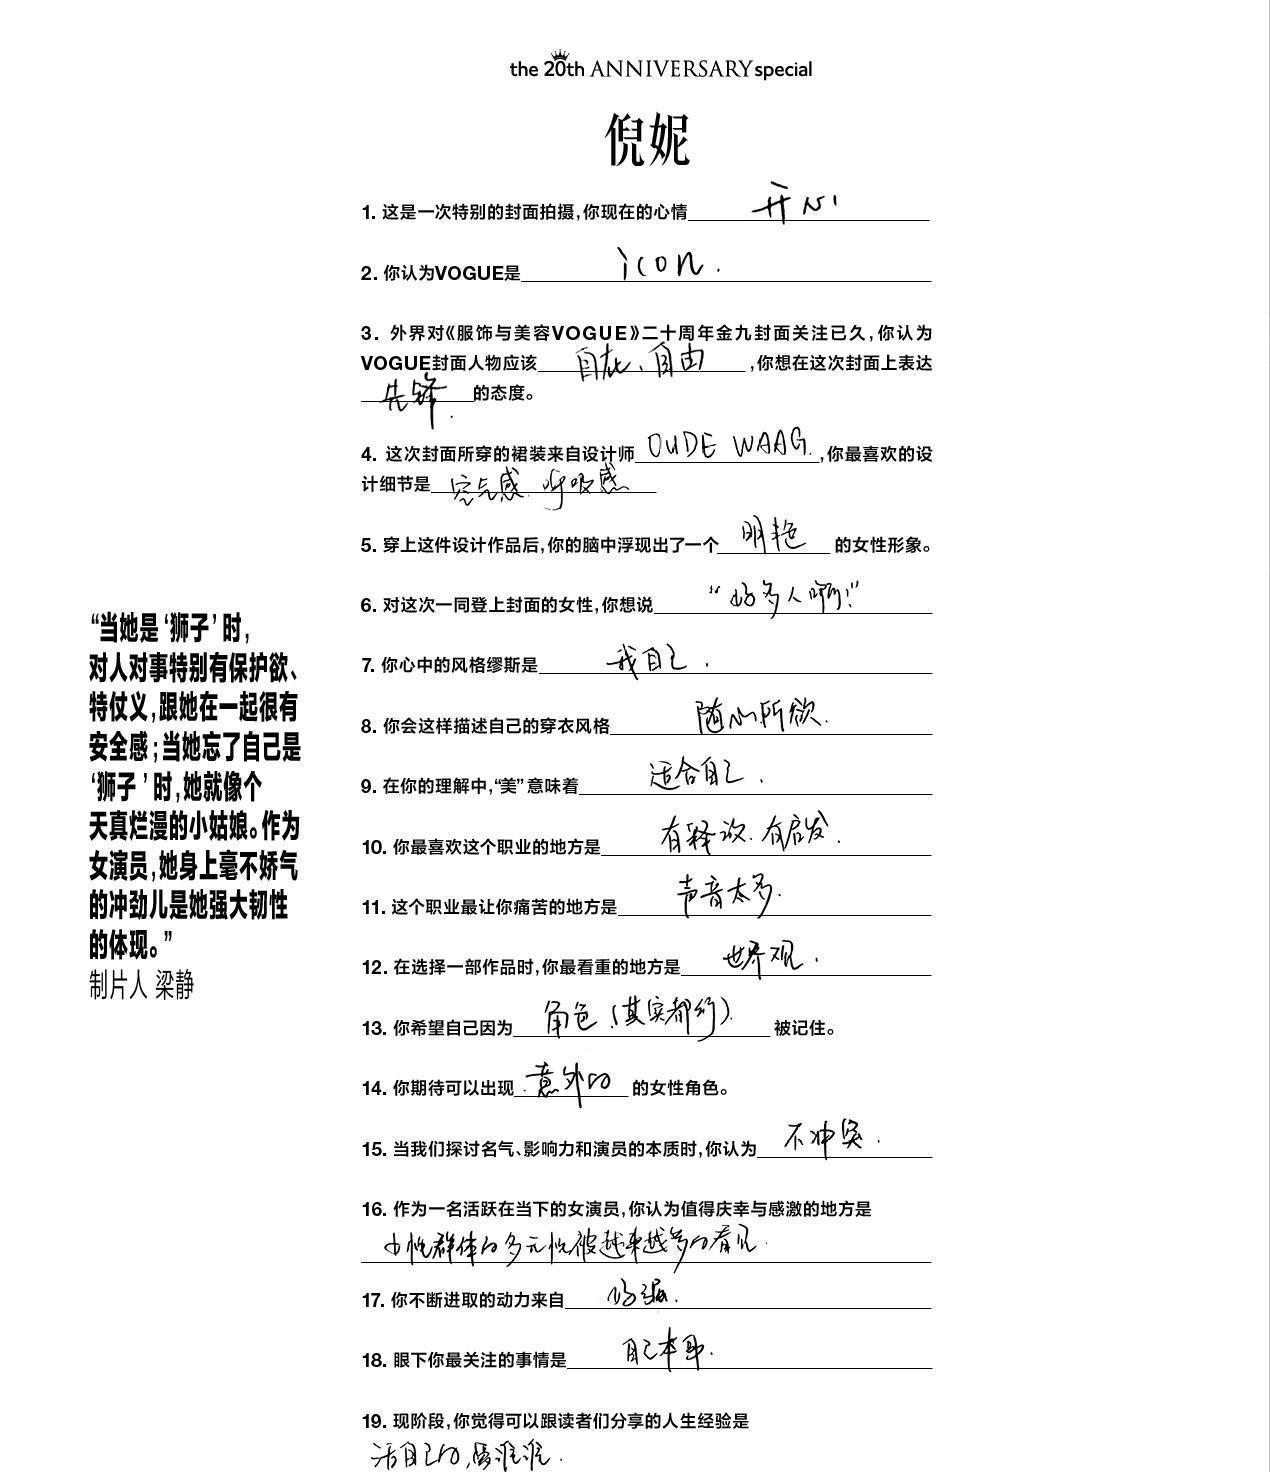 the 20th ANNIVERSARY special
倪妮
1. 这是一次特别的封面拍摄,你现在的心情 开心
2. 你认为VOGUE是 icon.
3. 外界对《服饰与美容VOGUE》二十周年金九封面关注已久,你认为
VOGUE封面人物应该 自在、自由 ,你想在这次封面上表达
先锋. 的态度。
4. 这次封面所穿的裙装来自设计师 OUDE WAAG. ,你最喜欢的设
计细节是 空气感. 呼吸感
5. 穿上这件设计作品后,你的脑中浮现出了一个 明艳 的女性形象。
6. 对这次一同登上封面的女性,你想说 “好多人啊!”
7. 你心中的风格缪斯是 我自己.
8. 你会这样描述自己的穿衣风格 随心所欲.
9. 在你的理解中,“美”意味着 适合自己.
10. 你最喜欢这个职业的地方是 有释放. 有启发.
11. 这个职业最让你痛苦的地方是 声音太多.
12. 在选择一部作品时,你最看重的地方是 世界观.
13. 你希望自己因为 角色.(其实都行). 被记住。
14. 你期待可以出现 意外的 的女性角色。
15. 当我们探讨名气、影响力和演员的本质时,你认为 不冲突.
16. 作为一名活跃在当下的女演员,你认为值得庆幸与感激的地方是
女性群体的多元性被越来越多的看见.
17. 你不断进取的动力来自 好强.
18. 眼下你最关注的事情是 自己本身.
19. 现阶段,你觉得可以跟读者们分享的人生经验是
活自己的,爱谁谁.
“当她是‘狮子’时,
对人对事特别有保护欲、
特仗义,跟她在一起很有
安全感;当她忘了自己是
‘狮子’时,她就像个
天真烂漫的小姑娘。作为
女演员,她身上毫不娇气
的冲劲儿是她强大韧性
的体现。”
制片人 梁静